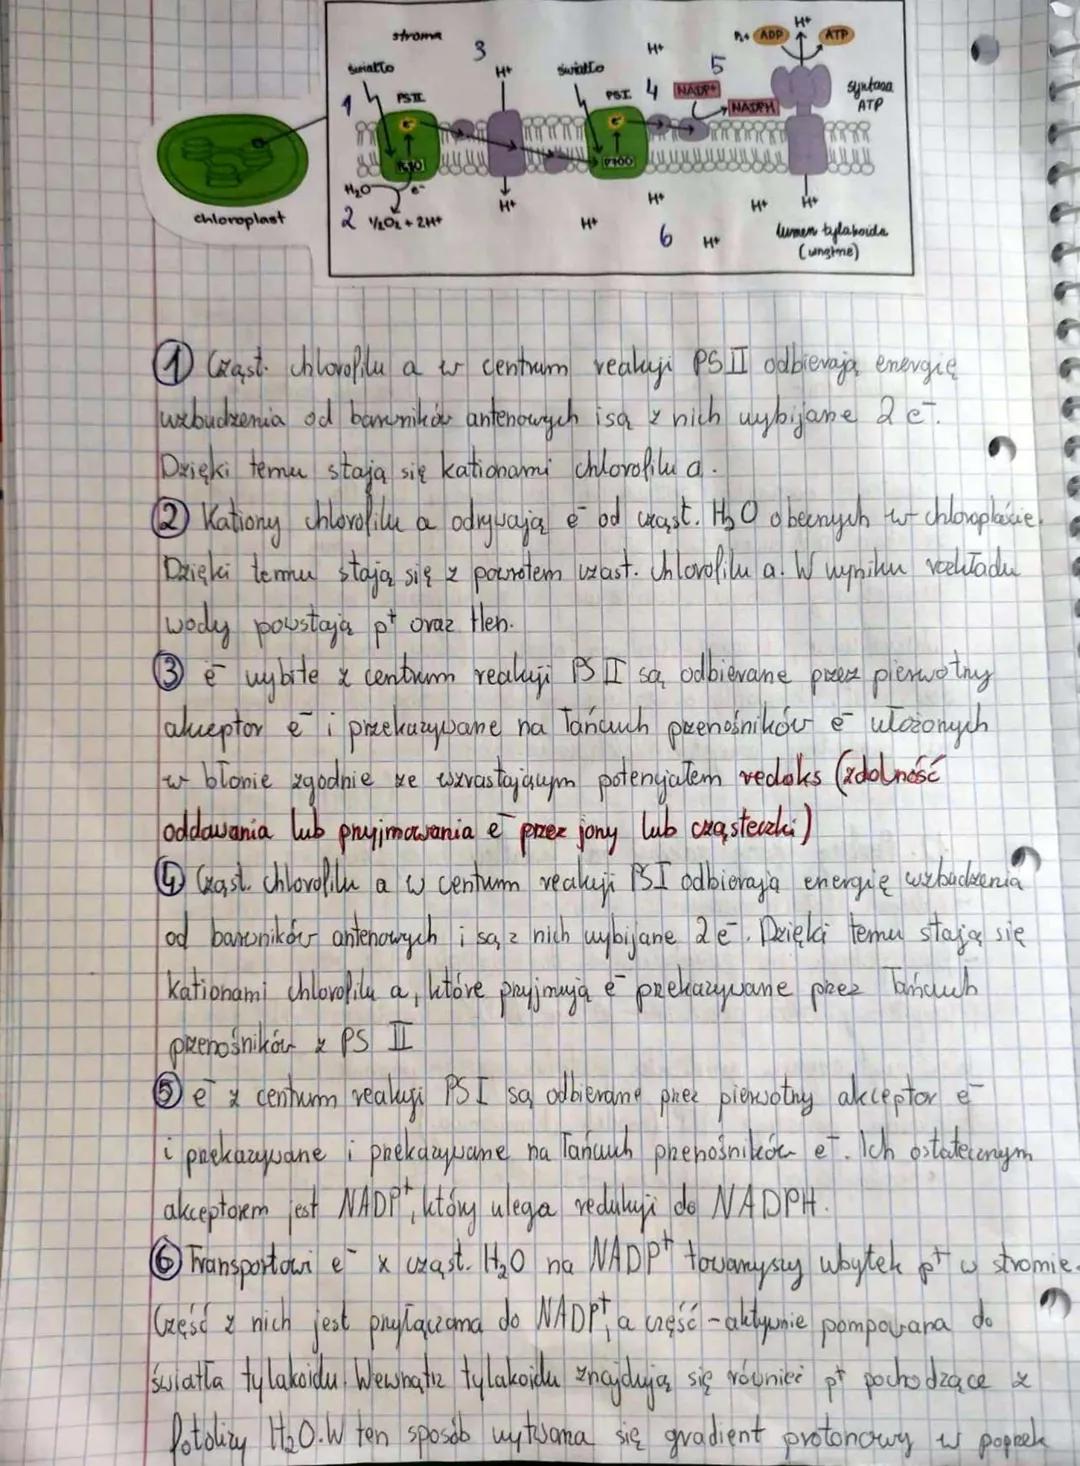 stroma
3
H+
H+
5
Pi+ ADP
ATP
światło
światło
1
PSII
H+
PSI
4
NADP+
NADPH
syntaza
ATP
e-
e-
P680
P700
H2O
e-
2
½O2 + 2H+
H+
H+
H+
6
H+
H+
H+
lumen tylakoida
(wnętrze)
chloroplast
① Cząst. chlorofilu a w centrum reakcji PSII odbierają energię
wzbudzenia od barwników antenowych i są z nich wybijane 2 e-.
Dzięki temu stają się kationami chlorofilu a.
② Kationy chlorofilu a odrywają e- od cząst. H2O obecnych w chloroplaście.
Dzięki temu stają się z powrotem cząst. chlorofilu a. W wyniku rozkładu
wody powstają p+ oraz tlen.
③ e- wybite z centrum reakcji PS II są odbierane przez pierwotny
akceptor e- i przekazywane na łańcuch przenośników e- ułożonych
w błonie zgodnie ze wzrastającym potencjałem redoks (zdolność
oddawania lub przyjmowania e- przez jony lub cząsteczki)
④ Cząst. chlorofilu a w centrum reakcji PSI odbierają energię wzbudzenia
od barwników antenowych i są z nich wybijane 2e-. Dzięki temu stają się
kationami chlorofilu a, które przyjmują e- przekazywane przez łańcuch
przenośników z PS II
⑤ e- z centrum reakcji PSI są odbierane przez pierwotny akceptor e-
i przekazywane i przekazywane na łańcuch przenośników e-. Ich ostatecznym
akceptorem jest NADP+, który ulega redukcji do NADPH.
⑥ Transportowi e- z cząst. H2O na NADP+ towarzyszy ubytek p+ w stromie.
Część z nich jest przyłączana do NADP+, a część - aktywnie pompowana do
światła tylakoidu. Wewnątrz tylakoidu znajdują się również p+ pochodzące z
fotolizy H2O. W ten sposób wytwarza się gradient protonowy w poprzek